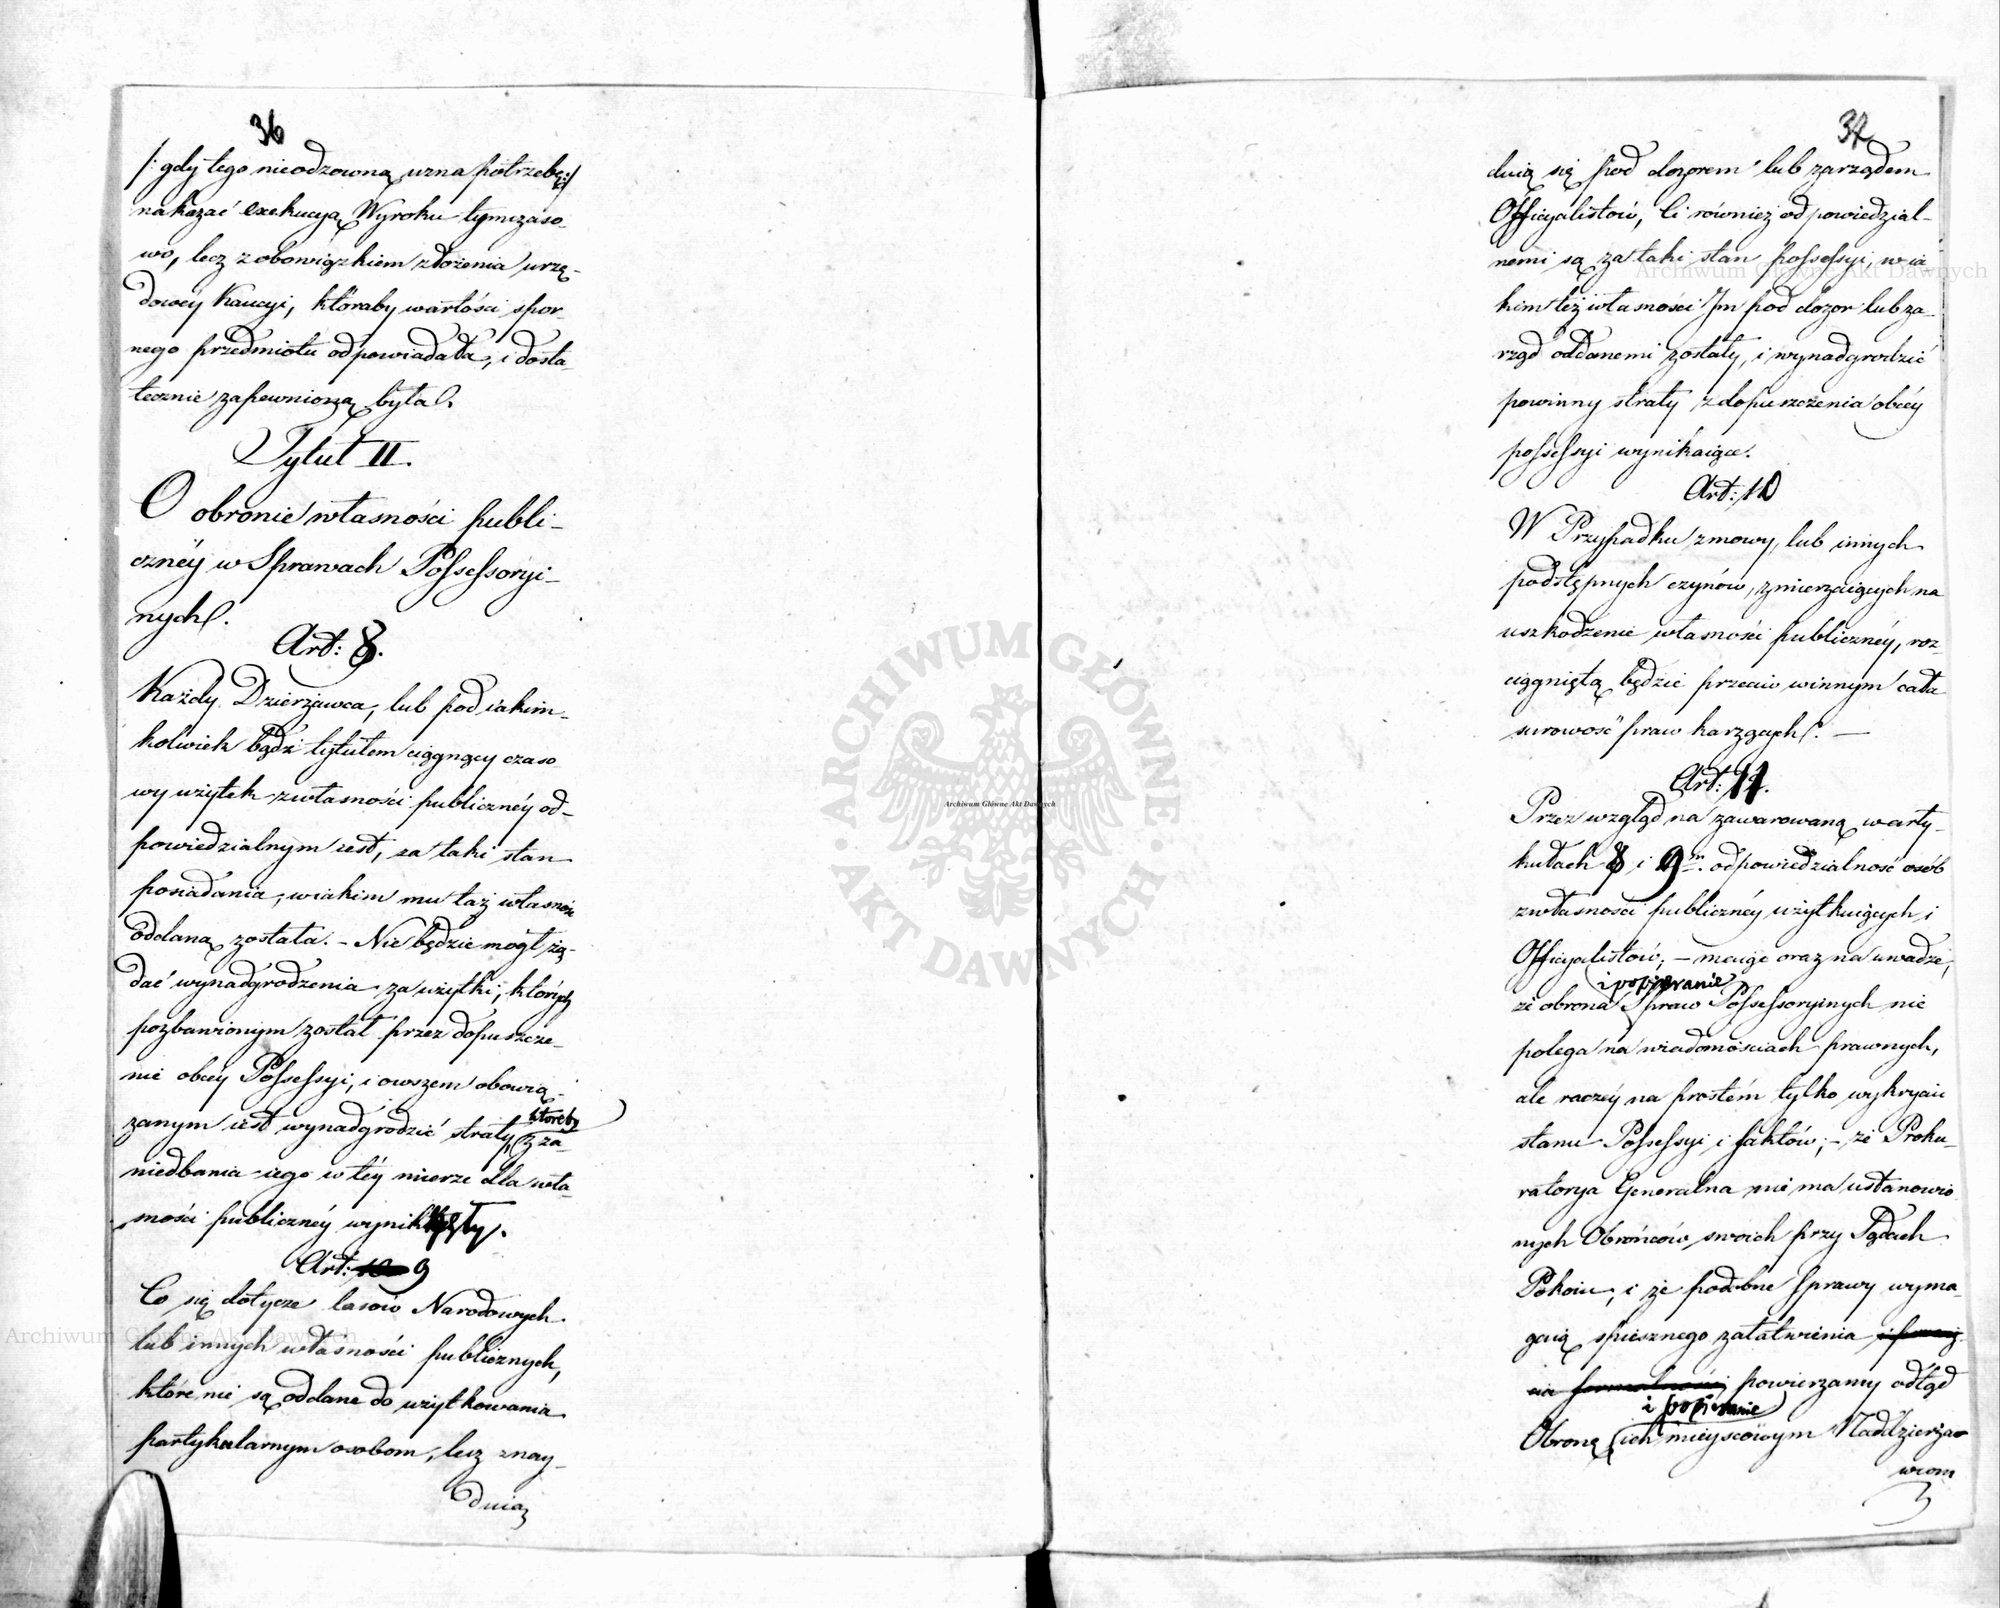 36
/: gdy tego nieodzowną uzna potrzebę :/
nakazać exekucyą Wyroku tymczaso-
wo, lecz z obowiązkiem złożenia urzę-
dowey Kaucyi, któraby wartości spor-
nego przedmiotu odpowiadała, i dosta-
tecznie zapewnioną była.
Tytuł II.
O obronie własności publi-
cznéy w Sprawach Possessoryi-
nych.
Art: 8.
Każdy Dzierżawca, lub pod iakim-
kolwiek bądź tytułem ciągnący czaso-
wy użytek z własności publicznéy od-
powiedzialnym iest, za taki stan
posiadania, w iakim mu taż własność
oddaną została. - Nie będzie mógł żą-
dać wynadgrodzenia za użytki, których
pozbawionym został przez dopuszcze-
nie obcey Possessyi, i owszem obowią-
zanym iest wynadgrodzić straty, z za-
któreby
niedbania iego w téy mierze dla wła-
sności publicznéy wynikły.
Art: 9
Co się dotycze lasów Narodowych
lub innych własności publicznych,
które nie są oddane do użytkowania
partykularnym osobom, lecz znay-
duią
37
duią się pod dozorem lub zarządem
Officyalistów, Ci również odpowiedzial-
nemi są za taki stan possessyi, w ia-
kim też własności Im pod dozor lub za-
rząd oddanemi zostały, i wynadgrodzić
powinny straty z dopuszczenia obcéy
possessyi wynikaiące.
Art: 10
W Przypadku zmowy, lub innych
podstępnych czynów, zmierzaiących na
uszkodzenie własności publicznéy, roz-
ciągniętą będzie przeciw winnym cała
surowość praw karzących. —
Art: 11.
Przez wzgląd na zawarowaną w arty-
kułach 8 i 9m. odpowiedzialność osób
z własności publicznéy użytkuiących i
Officyalistów; - maiąc oraz na uwadze,
i popieranie
że obrona Spraw Possessoryinych nie
polega na wiadomościach prawnych,
ale raczéy na prostém tylko wykryciu
stanu Possessyi i faktów; - że Proku-
ratorya Generalna nie ma ustanowio-
nych Obrońców swoich przy Sądach
Pokoiu, i że podobne sprawy wyma-
gaią spiesznego załatwienia
formalności powierzamy odtąd
i popieranie
Obronę ich mieyscowym Naddzierża-
wcom
Archiwum Główne Akt Dawnych
Archiwum Główne Akt Dawnych
Archiwum Główne Akt Dawnych
ARCHIWUM GŁÓWNE AKT DAWNYCH